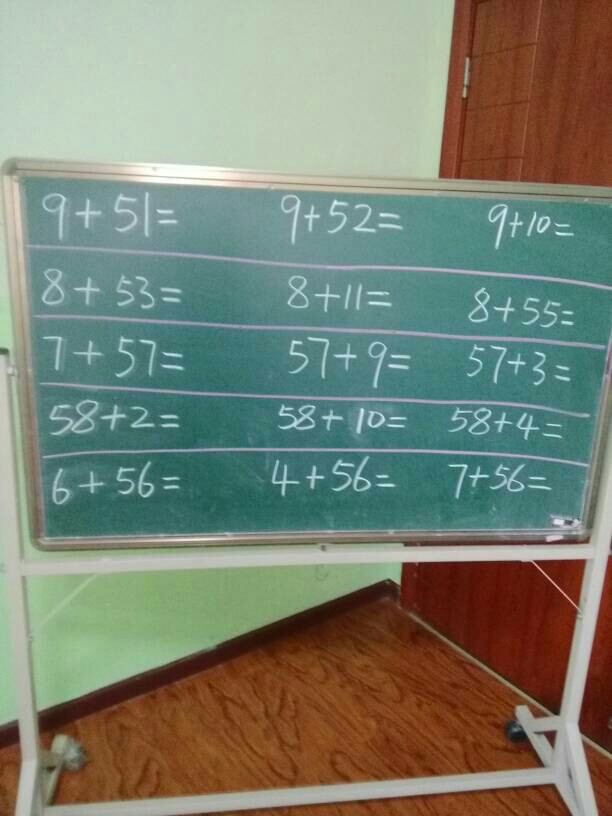 9+51= 9+52= 9+10=
8+53= 8+11= 8+55=
7+57= 57+9= 57+3=
58+2= 58+10= 58+4=
6+56= 4+56= 7+56=